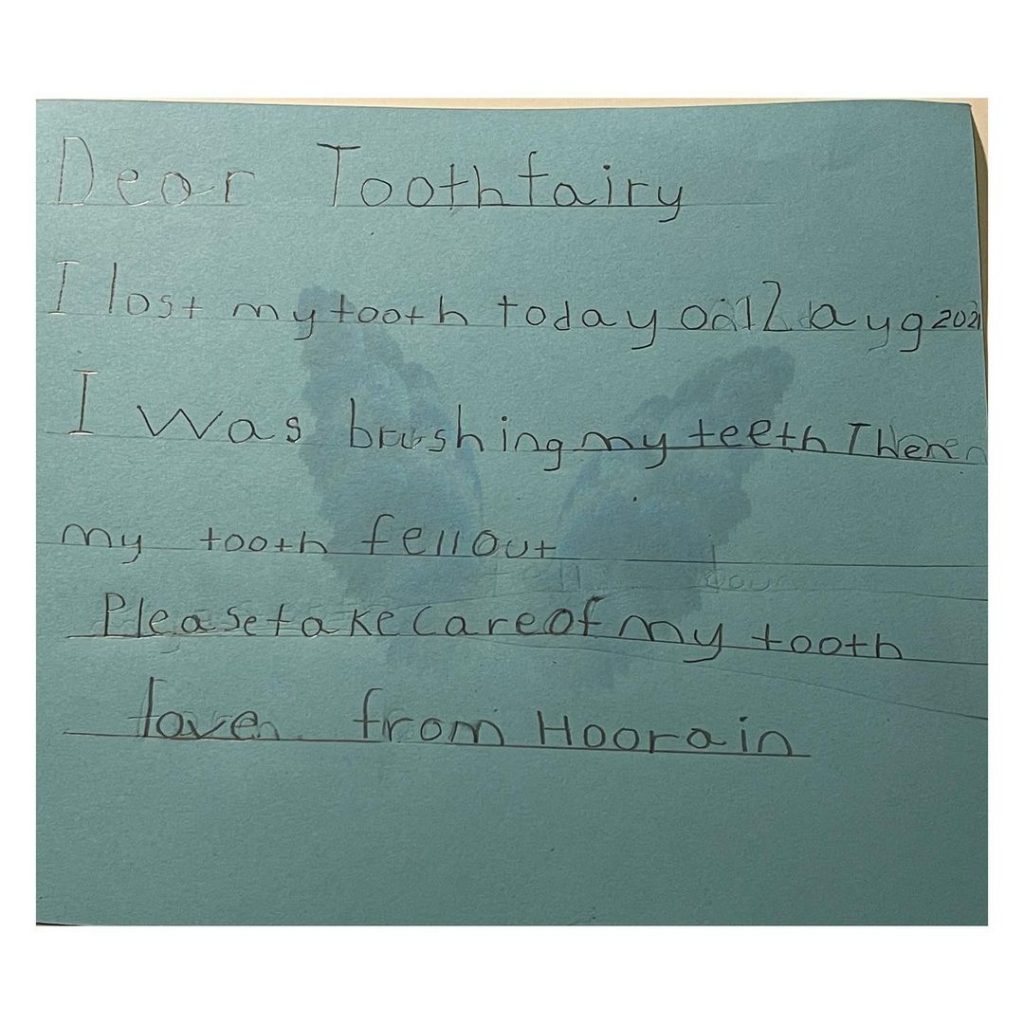 Dear Toothfairy
I lost my tooth today on 12 ayg 2021
I was brushing my teeth Then
my tooth fell out
Please take care of my tooth
love from Hoorain